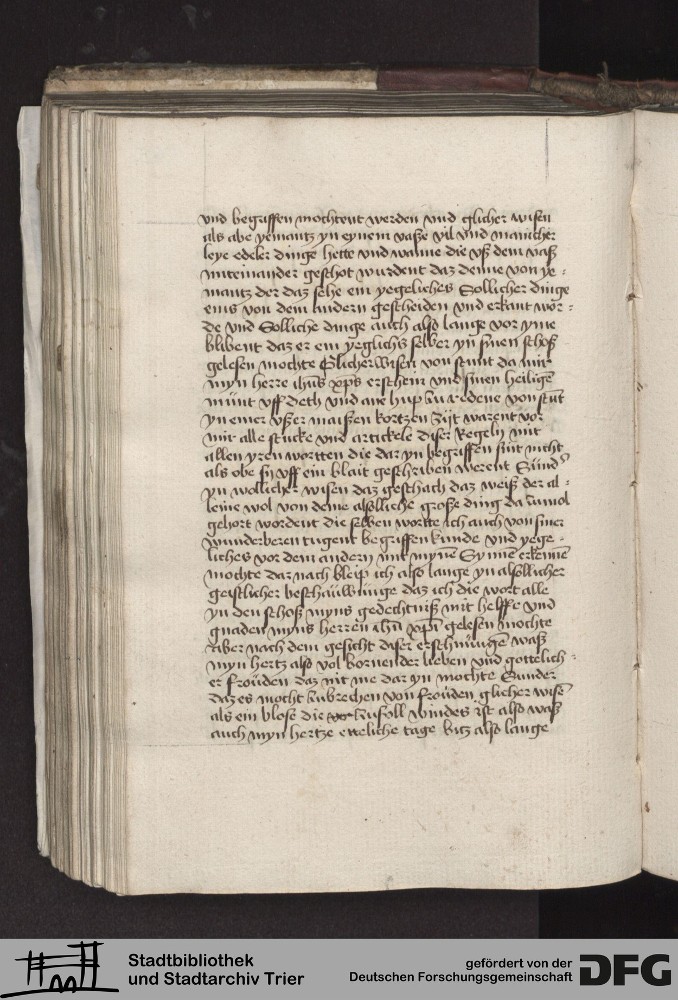 vnd begriffen mochtent werden vnd glicher wisen
als abe yemantz yn eynem vasße vil vnd manicher
leye edeler dinge hette vnd wanne die vß dem vaß
miteinander geschot wurdent daz denne von ye-
mantz der daz sehe ein yegeliches Sollicher dinge
eins von dem andern gescheiden vnd erkant wor-
de vnd Solliche dinge auch also lange vor yme
blibent daz er ein yeglichs selber yn sinen schoß
gelesen mochte Glicherwisen von stunt da mir
myn herre ihus xps erschein vnd sinen heiligē
munt vff deth vnd ane hup zu redene von stūt
yn einer vßer maißen kortzen zijt warent vor
mir alle stucke vnd artickele diser Regeln mit
allen yren wortten die dar yn begriffen sint nicht
als obe sij vff ein blait geschriben werent Sund
yn wollicher wisen daz geschach daz weiß der al-
leine wol von deme alsolliche große ding da zumol
gehort wordent die selben wortte ich auch von siner
wunderberen tugent begriffen kunde vnd yege-
liches vor dem andern mit mynē Synnē erkennē
mochte dar nach bleip ich also lange yn alsollicher
geistlicher beschauwunge daz ich die wort alle
yn den schoß myns gedechtniß mit helffe vnd
gnaden myns herren ihū xpi gelesen mochte
Aber nach dem gesicht diser erschinungē waß
myn hertz also vol bornender lieben vnd gottelich-
er froüden daz nit me dar yn mochte Sunder
daz es mocht zubrechen von froüden glicher wisē
als ein blose die zufoll windes ist also waß
auch myn hertze etteliche tage bitz also lange
Stadtbibliothek
und Stadtarchiv Trier
gefördert von der
Deutschen Forschungsgemeinschaft
DFG